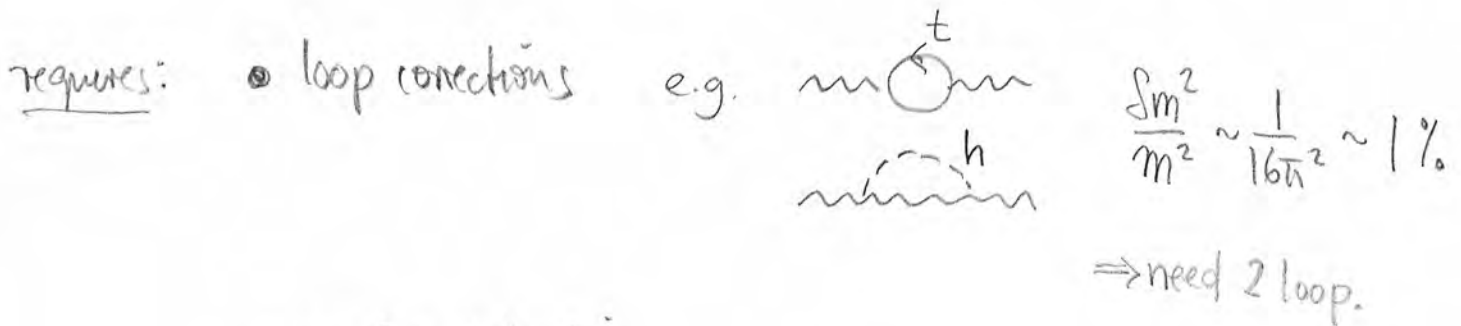 requires: • loop corrections e.g. t
h
δm²/m² ~ 1/16π² ~ 1%
⇒ need 2 loop.